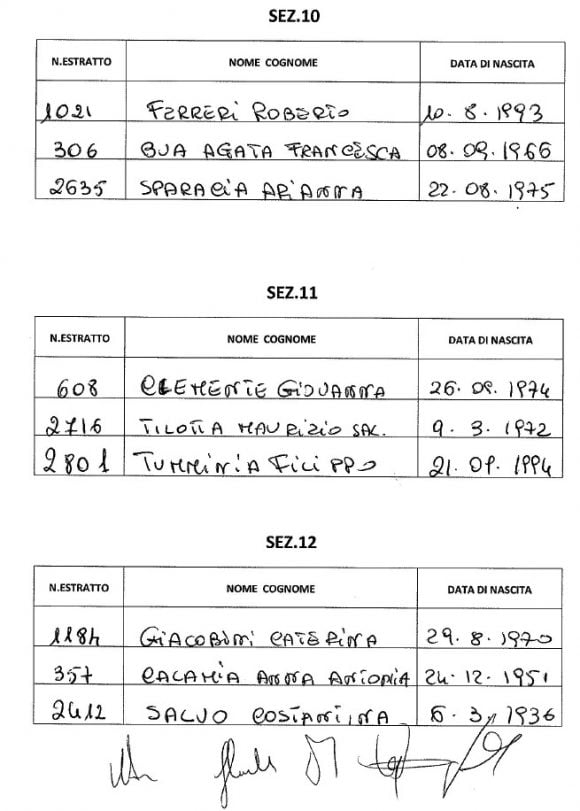 SEZ.10
N.ESTRATTO NOME COGNOME DATA DI NASCITA
1021 FERRERI ROBERTO 10. 8. 1993
306 BUA AGATA FRANCESCA 08. 09. 1966
2635 SPARACIA ARIANNA 22. 08. 1975
SEZ.11
N.ESTRATTO NOME COGNOME DATA DI NASCITA
608 CLEMENTE GIOVANNA 26. 09. 1974
2716 TILOTTA MAURIZIO SAL. 9. 3. 1972
2801 TUMMINIA FILIPPO 21. 09. 1994
SEZ.12
N.ESTRATTO NOME COGNOME DATA DI NASCITA
1184 GIACOBINI CATERINA 29. 8. 1970
357 CALAMIA ANNA ANTONIA 24. 12. 1951
2412 SALVO COSTANTINA 6. 3. 1936